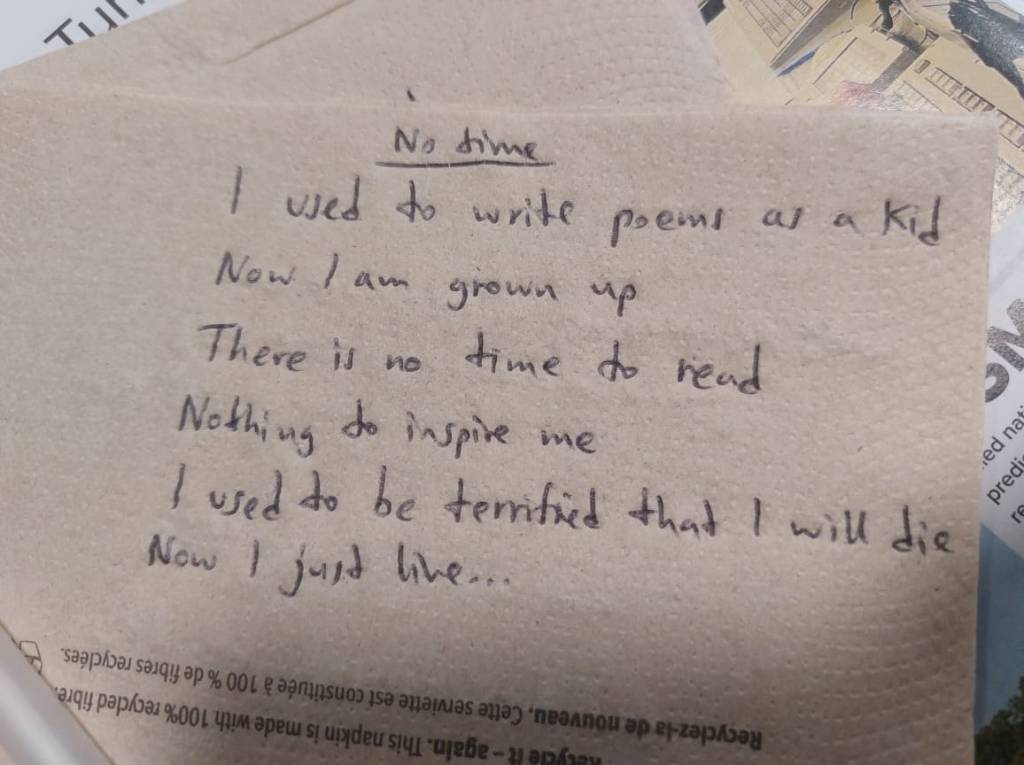 Tur
No time
I used to write poems as a kid
Now I am grown up
There is no time to read
Nothing to inspire me
I used to be terrified that I will die
Now I just live...
Recyclez-la de nouveau. Cette serviette est constituée à 100 % de fibres recyclées.
Recycle it – again. This napkin is made with 100% recycled fibre
SM
ned nat
predi
re